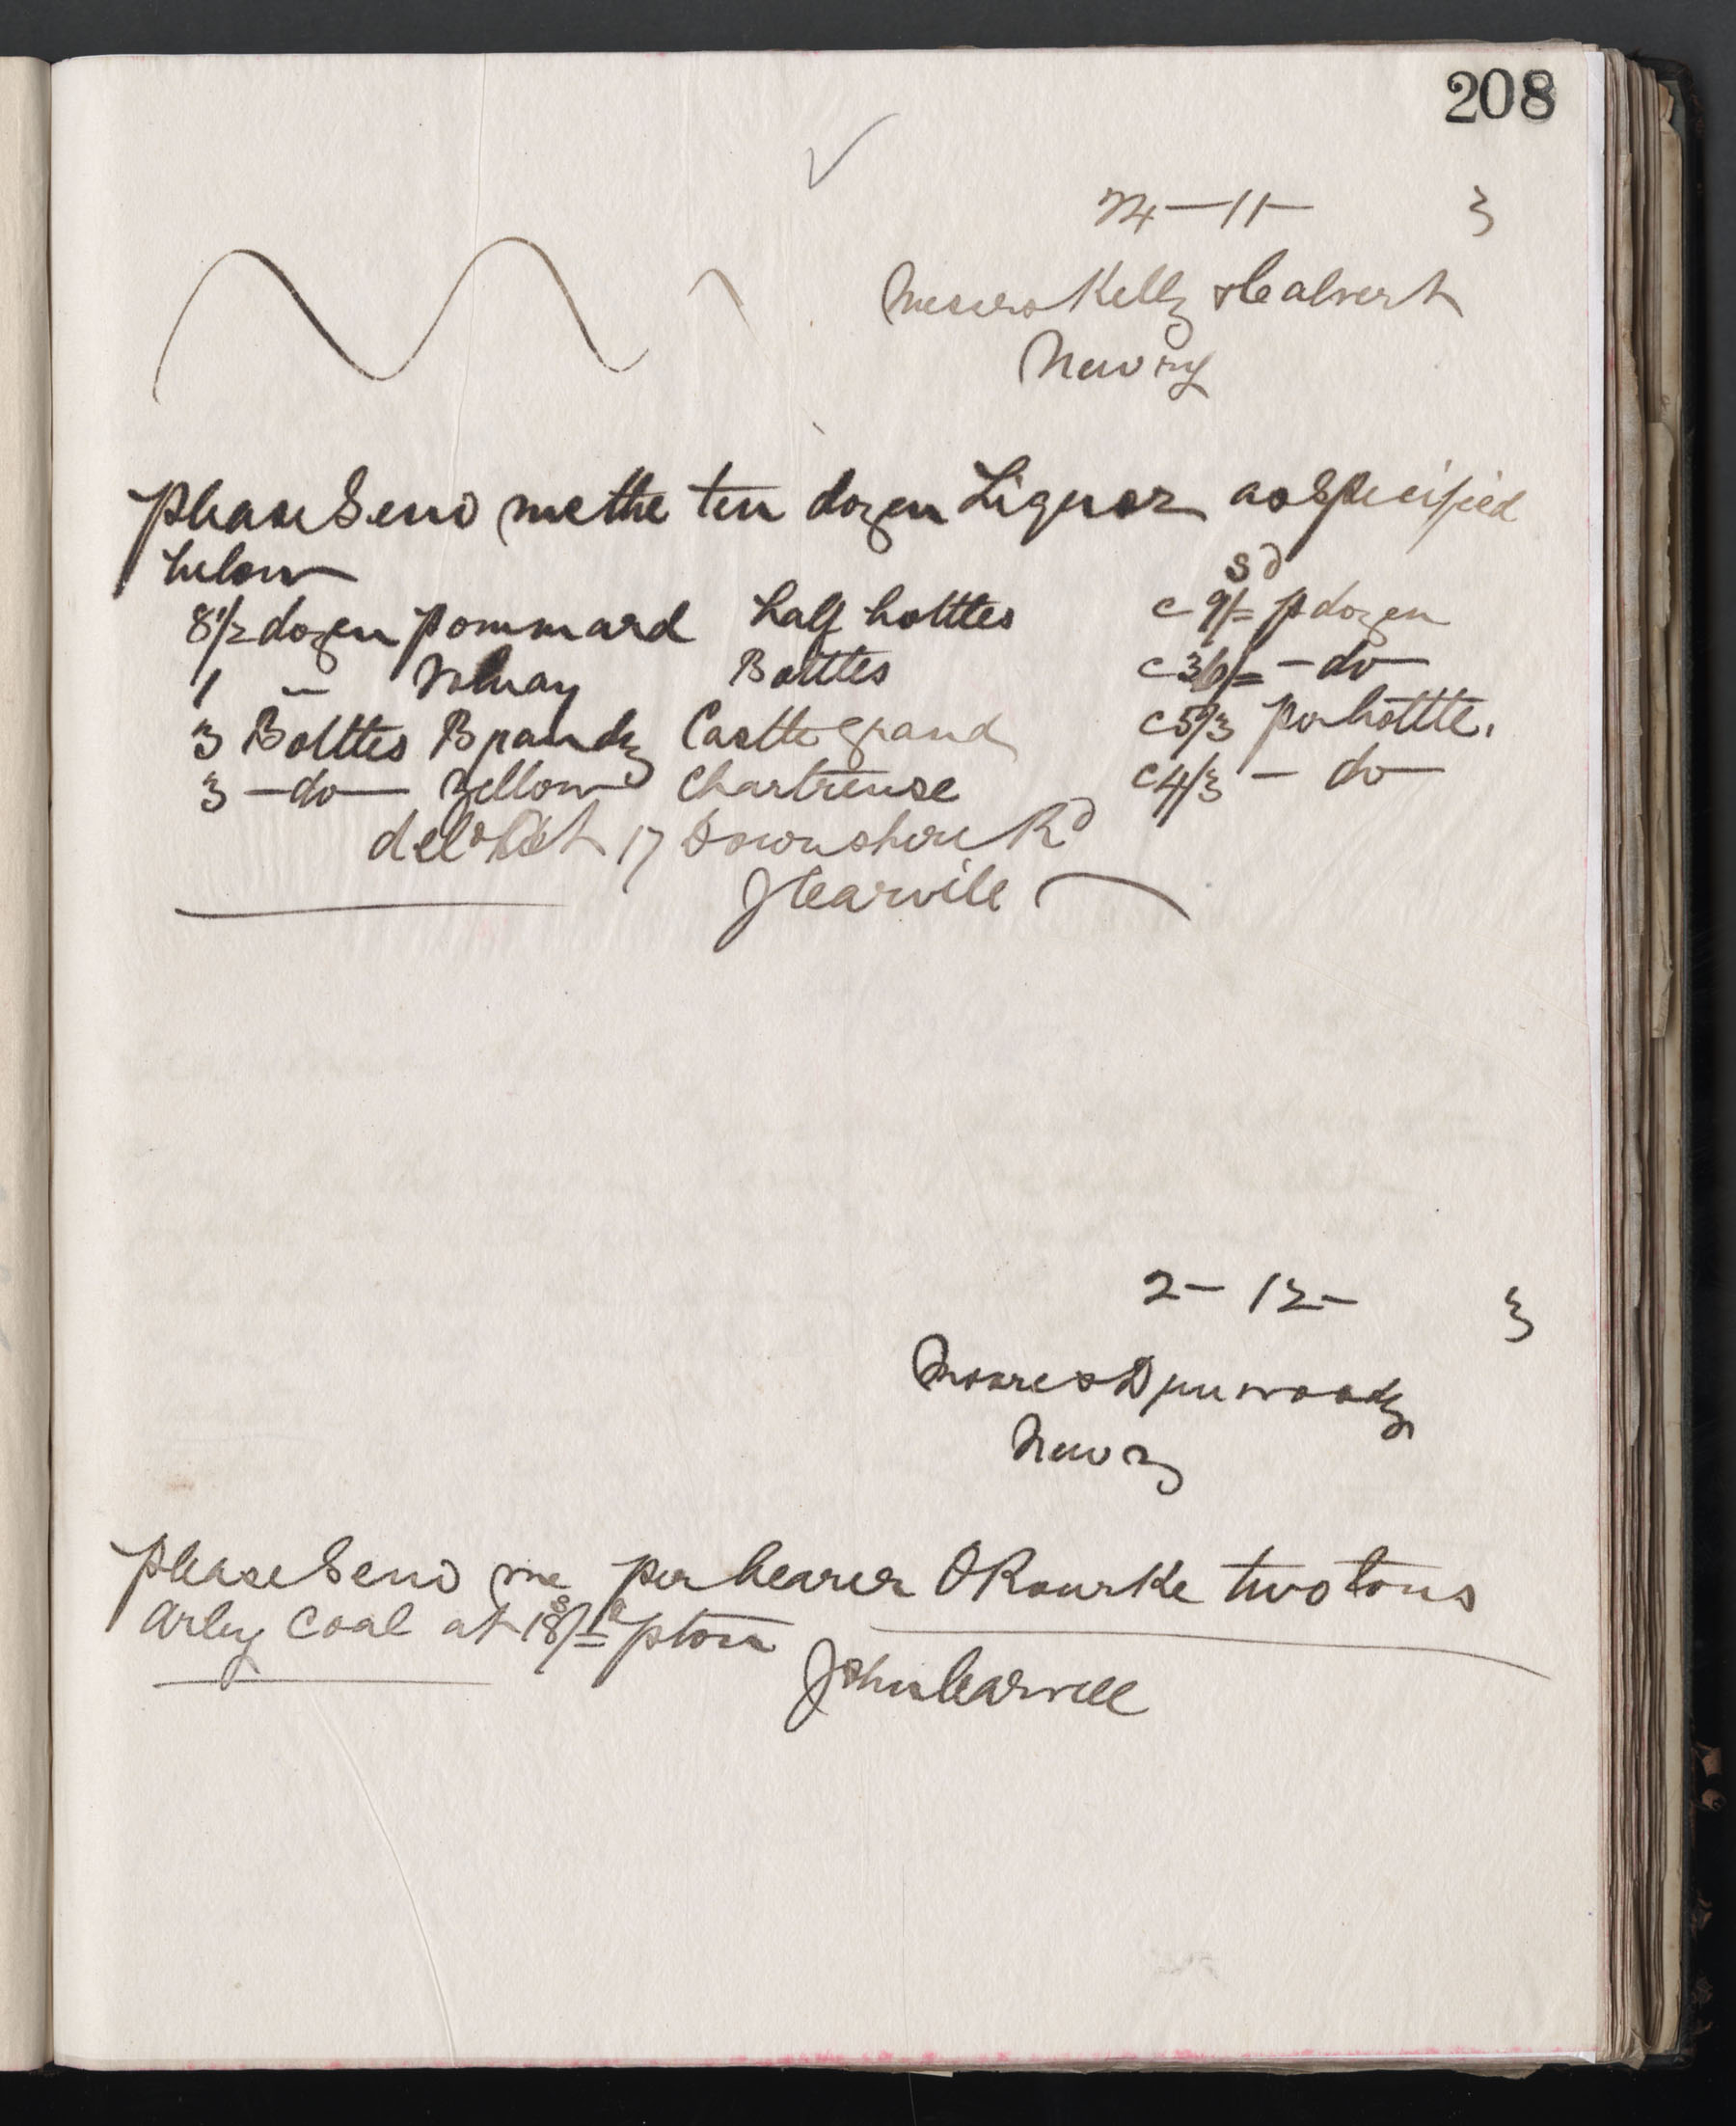 208
24-11- 3
Messrs Kelly & Calvert
Newry
Please Send me the ten dozen Liquor as Specified
below
s d
8 1/2 dozen Pommard half bottles c 9/= p dozen
1 " Volnay Bottles c 36/= - do
3 Bottles Brandy Castle grand c 5/3 per bottle.
3 - do - Yellow Chartreuse c 4/3 - do
17 Downshire Rd
J Carvill
2- 12- 3
Moore & Dinwoody
Newry
Please Send me per bearer O Rourke two tons
Arley Coal at 18s/= p ton
John Carvill